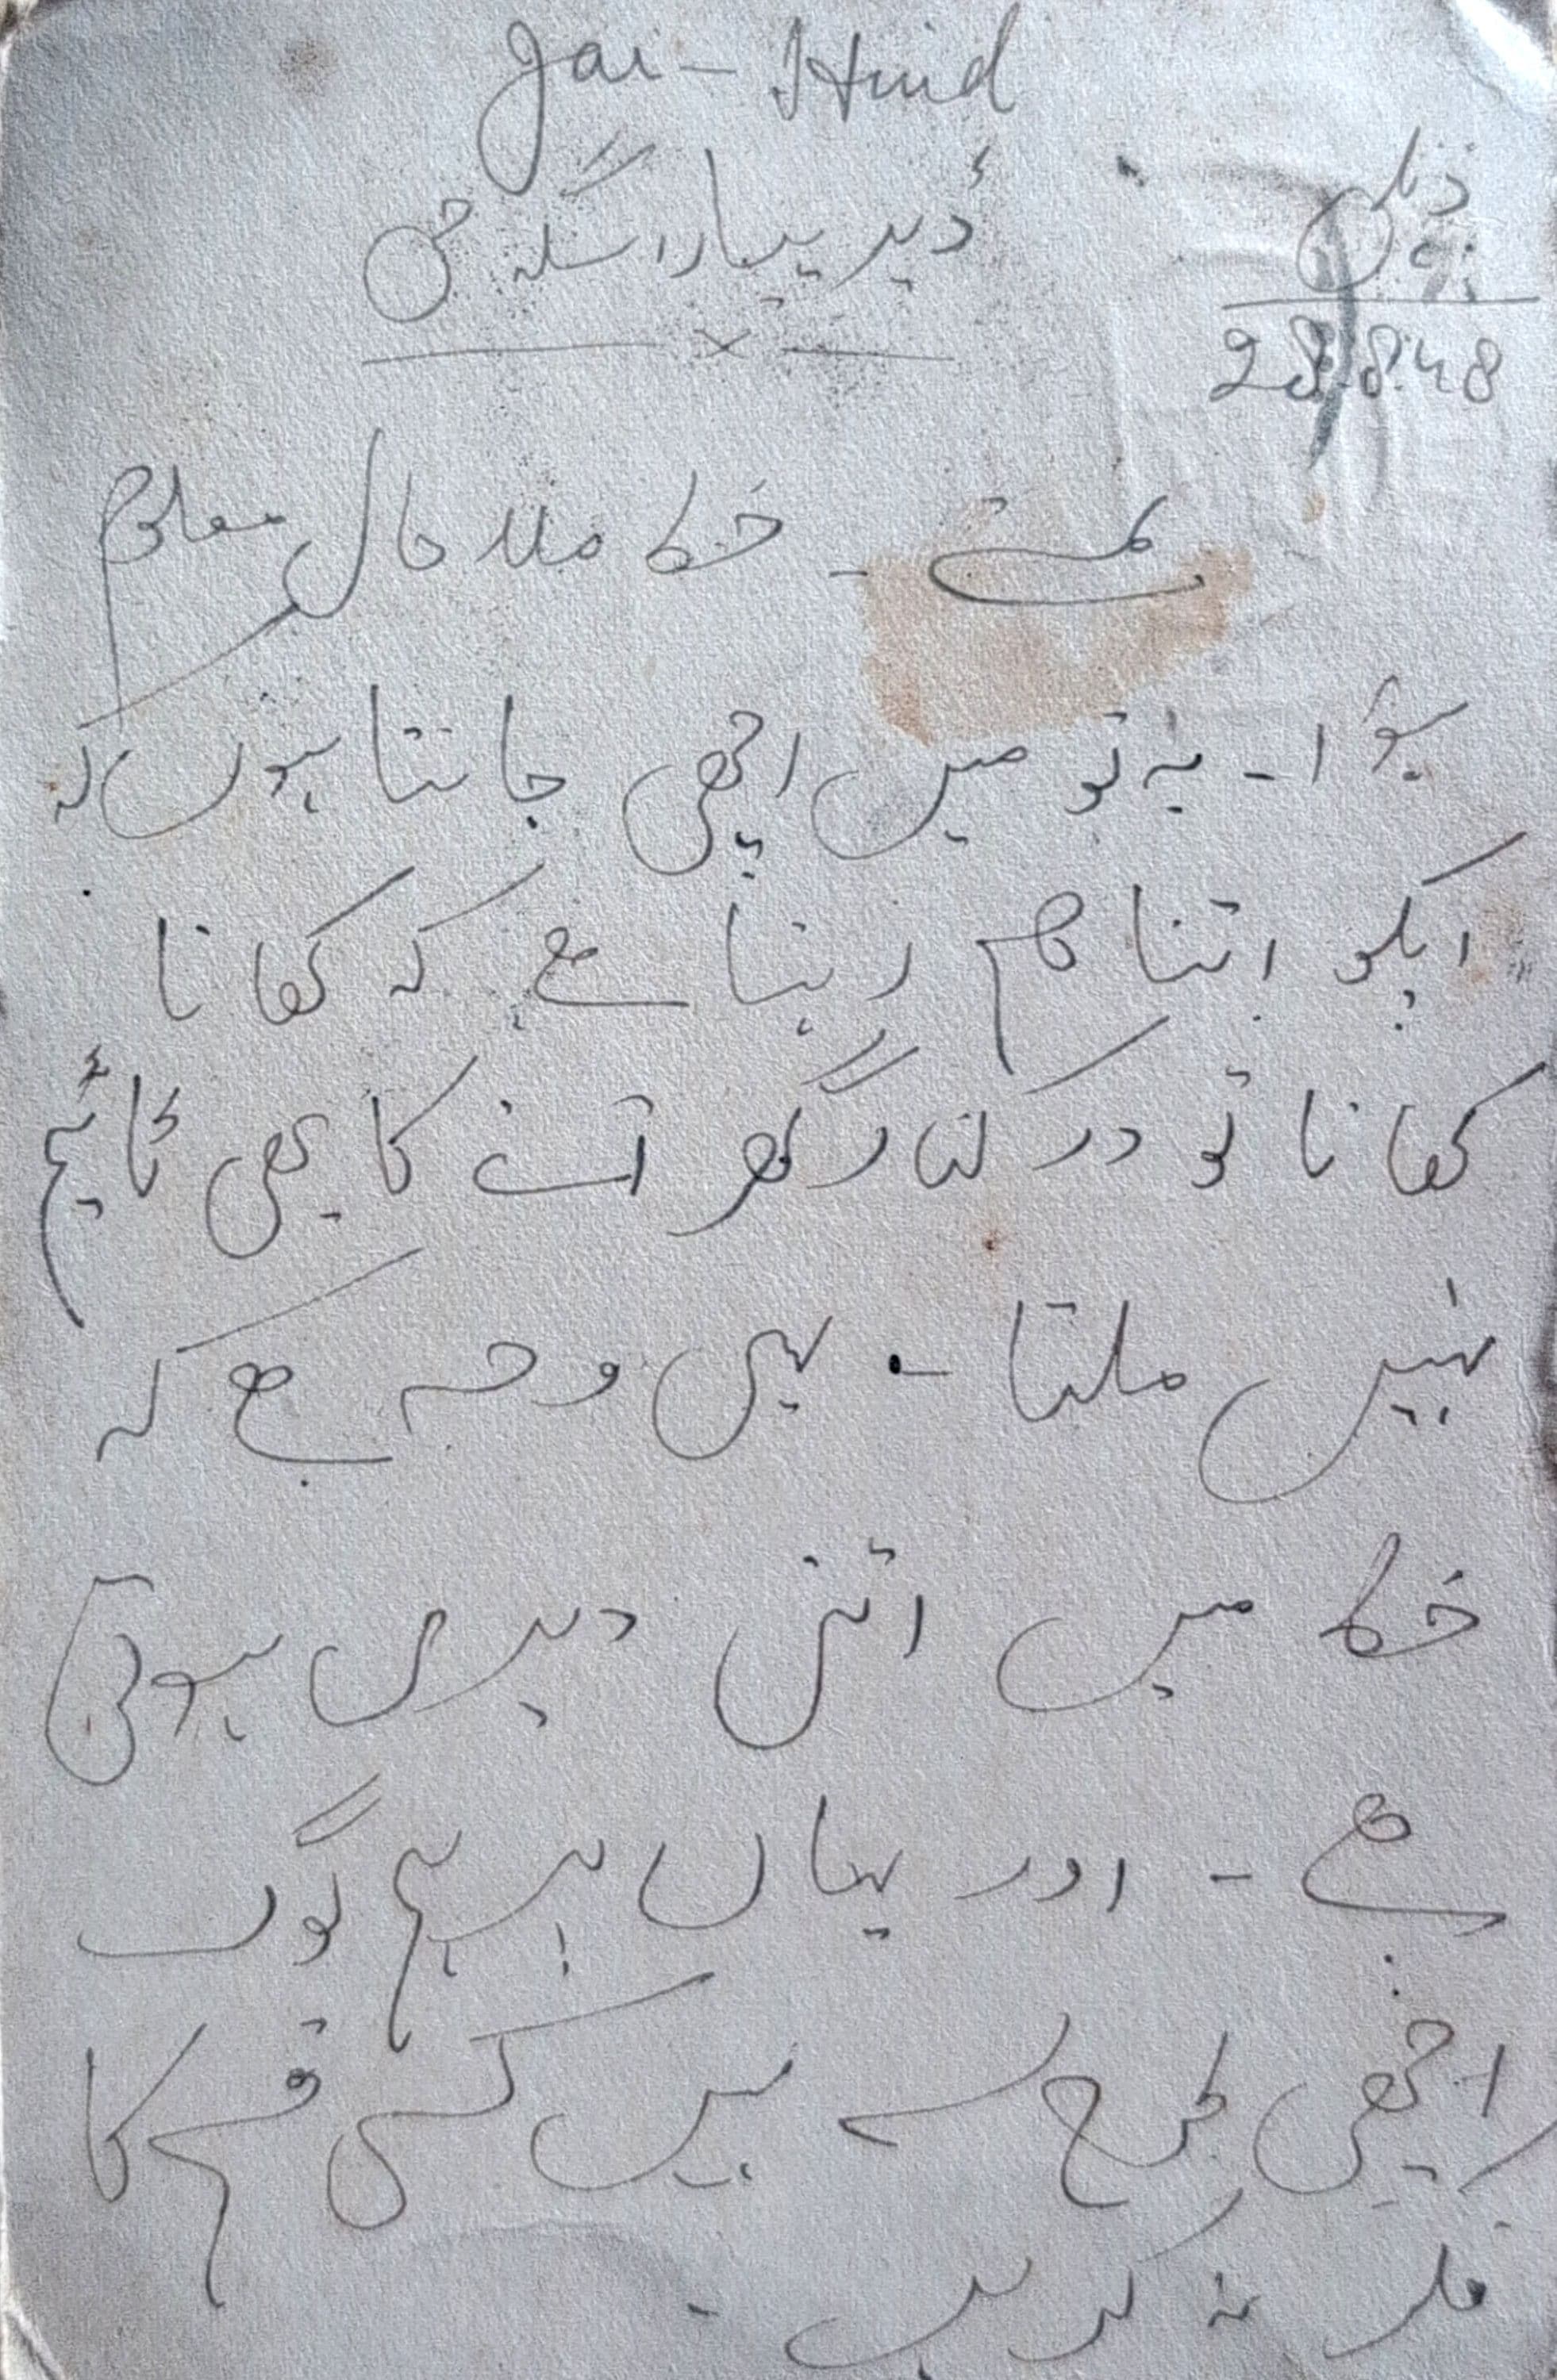 Jai-Hind
دہلی
28.8.48
ڈیر پیارا سنگھ جی
نمستے - خط ملا حال معلوم
ہؤا - یہ تو میں اچھی جانتا ہوں کہ
اپکو اتنا کام رہتا ہے کہ کھانا
کھانا تو درکنار گھر آنے کا بھی ٹائیم
نہیں ملتا - یہی وجہ ہے کہ
خط میں اتنی دیری ہوتی
ہے - اور یہاں پر ہم لوگ
اچھی طرح سے ہیں کسی قسم کا
فکر نہ کریں -